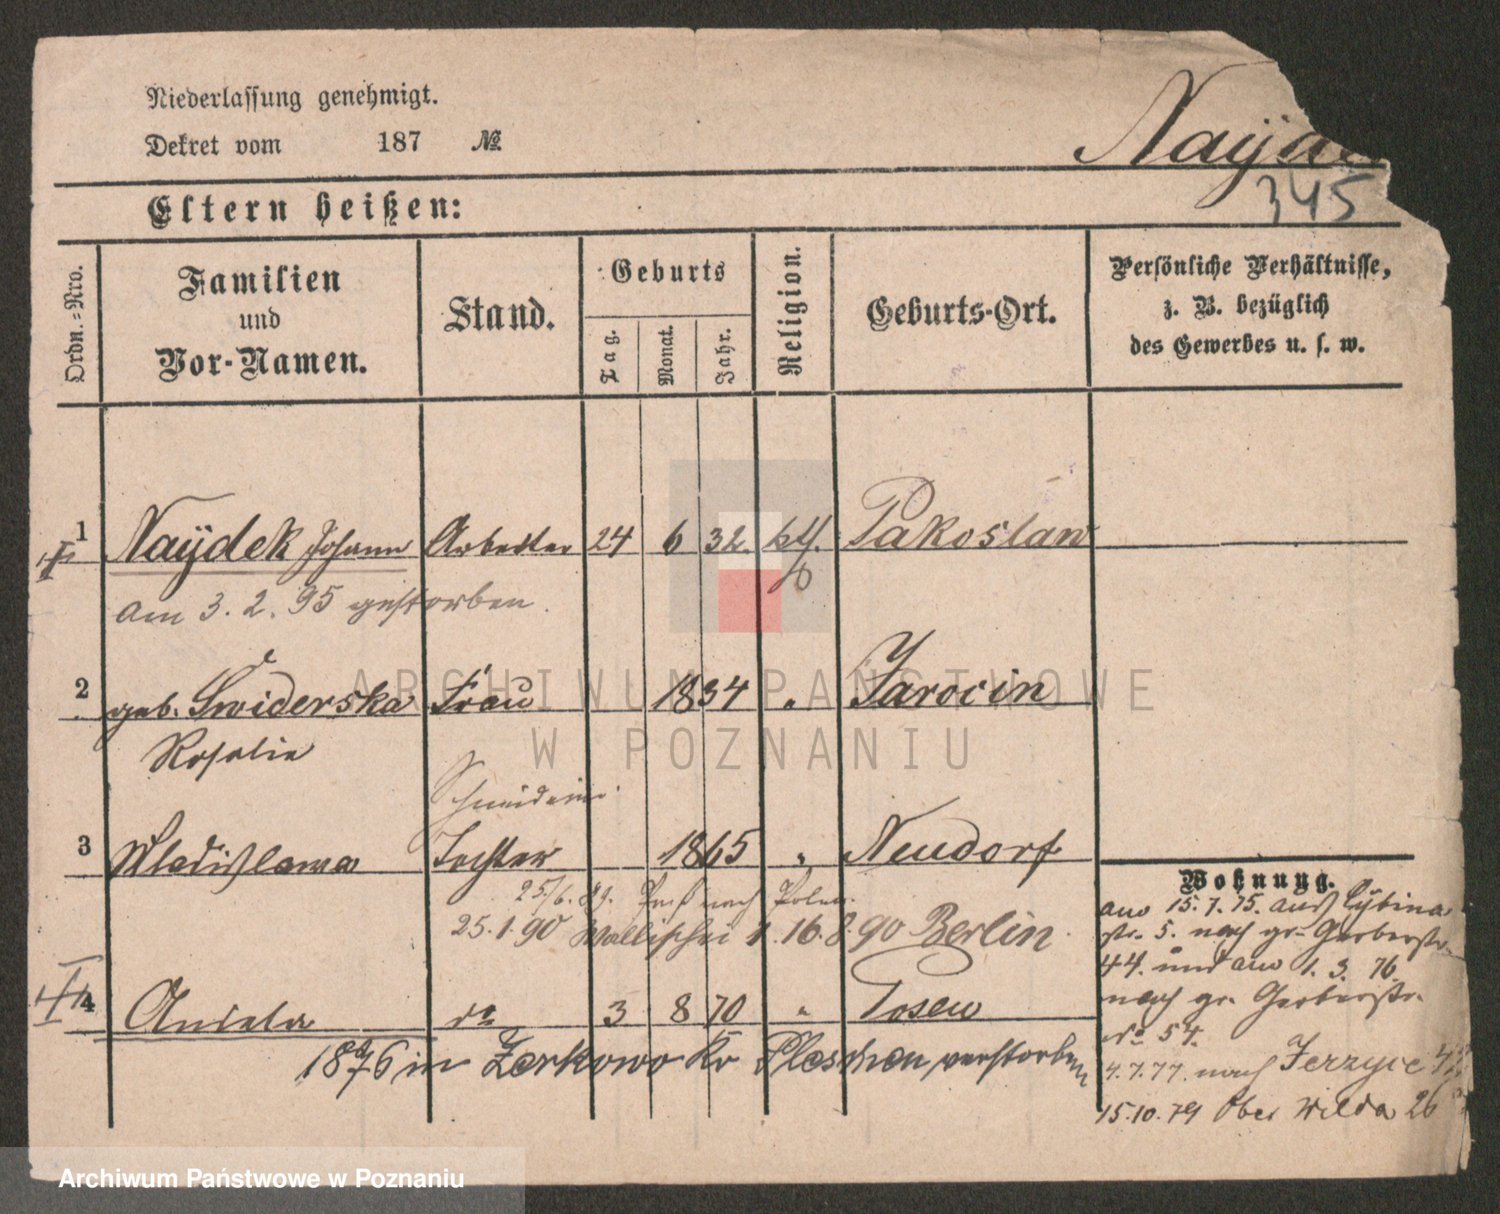 Niederlassung genehmigt.
Dekret vom 187 №
Naÿde
345
Eltern heißen:
Ordn.=Nro.
Familien und Vor-Namen.
Stand.
Geburts
Tag.
Monat.
Jahr.
Religion.
Geburts-Ort.
Persönliche Verhältnisse,
z. B. bezüglich
des Gewerbes u. s. w.
1 Naÿdek Johann Arbeiter 24 6 32. kth. Pakoslaw
am 3. 2. 95 gestorben.
2 geb. Swiderska Frau 1834 " Jarocin
Rosalie
Schneiderin
3 Wladislawa Tochter 1865 " Neudorf
25/6. 89. Paß nach Polen.
25.1.90 Wallischei 1. 16.8.90 Berlin.
4 Aniela do 3 8 70 " Posen
1876 in Zerkowo Kr Pleschen verstorben
Wohnung.
am 15.7.75. aus Cybina
str. 5. nach gr. Gerberstr.
44. und am 1. 3. 76
nach gr. Gerberstr.
No 54.
4.7.77. nach Jerzyce
15.10.79 Ober Wilda 26
ARCHIWUM PAŃSTWOWE
W POZNANIU
Archiwum Państwowe w Poznaniu